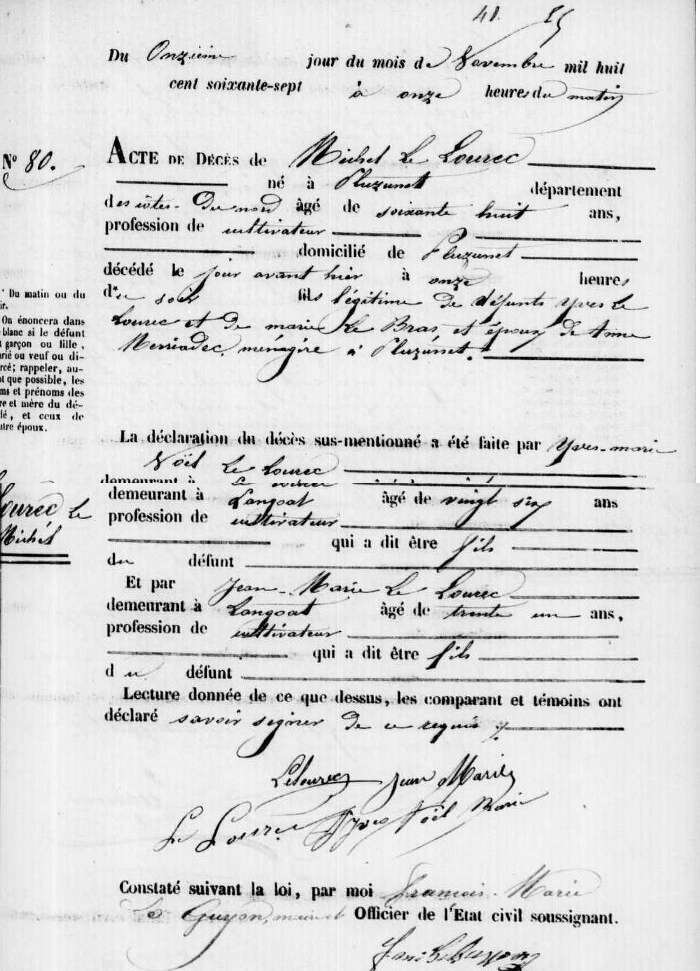 48. 55
Du Onzieme jour du mois de Novembre mil huit
cent soixante-sept à onze heures du matin
N° 80.
ACTE DE DÉCÈS de Michel Le Lourec
né à Pluzunet département
des côtes-Du nord âgé de soixante huit ans,
profession de cultivateur
domicilié de Pluzunet
décédé le jour avant hier à onze heures
du soir fils légitime de défunts yves Le
Lourec et de marie Le Bras, et époux de Anne
Meriadec, ménagère à Pluzunet.
* Du matin ou du
ir.
On énoncera dans
blanc si le défunt
t garçon ou fille,
arié ou veuf ou di-
rcé; rappeler, au-
nt que possible, les
ms et prénoms des
re et mère du dé-
dé, et ceux de
utre époux.
La déclaration du décès sus-mentionné a été faite par Yves-marie
Noël Le Lourec
demeurant à
Lourec Le
Michel
demeurant à Langoat âgé de vingt six ans
profession de cultivateur
qui a dit être fils
du défunt
Et par Jean-Marie Le Lourec
demeurant à Langoat âgé de trente un ans,
profession de cultivateur
qui a dit être fils
du défunt
Lecture donnée de ce que dessus, les comparant et témoins ont
déclaré savoir signer de ce requis
Lelourec jean Marie
Le Lourec Yves Noël Marie
Constaté suivant la loi, par moi François-Marie
Le Guyon, maire et Officier de l'Etat civil soussignant.